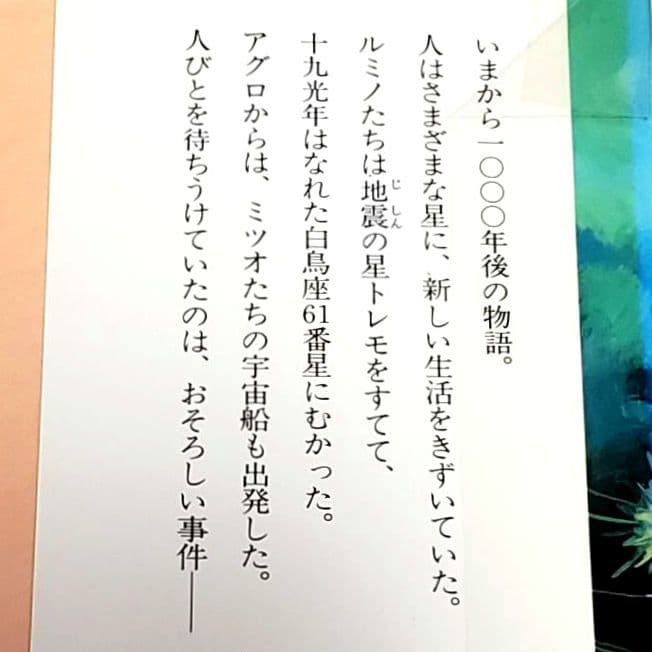 いまから一〇〇〇年後の物語。
人はさまざまな星に、新しい生活をきずいていた。
ルミノたちは地震の星トレモをすてて、
十九光年はなれた白鳥座61番星にむかった。
アグロからは、ミツオたちの宇宙船も出発した。
人びとを待ちうけていたのは、おそろしい事件――